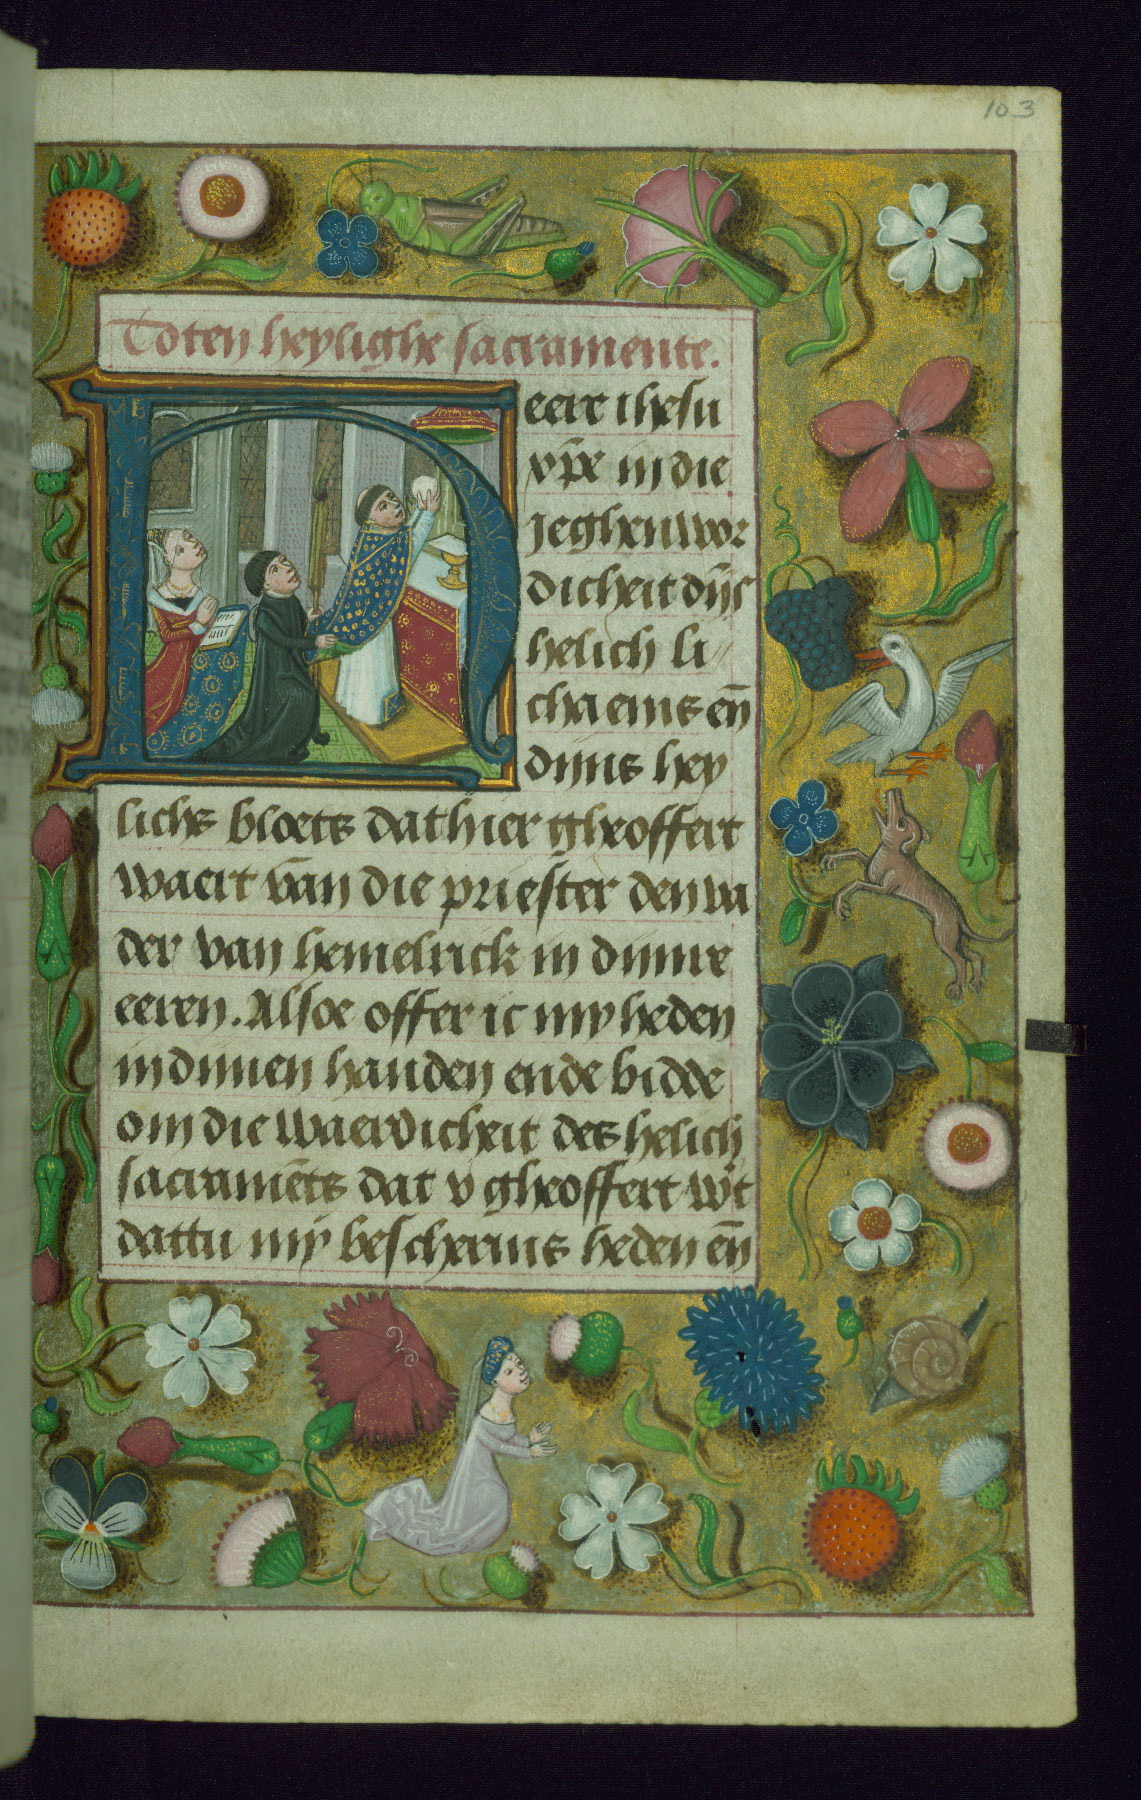 103
Toten heylighe sacramente.
Heer ihesu
xp̄e in die
jeghenwor
dicheit dijs
helich li
chaems en̄
dijns hey
lichs bloets dat hier gheoffert
waert vān die priester den va
der van hemelrick in dijnre
eeren. Alsoe offer ic my heden
in dinen handen ende bidde
om die waerdicheit des helich
sacramēts dat v gheoffert wt
dattu mÿ bescherms heden en̄